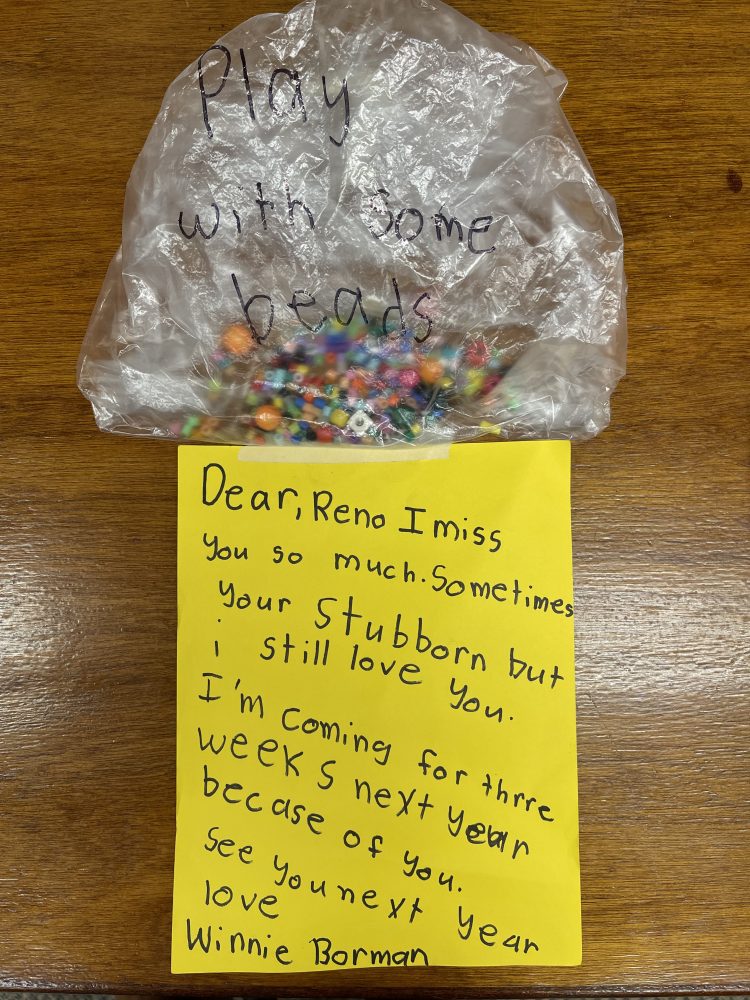 Play
with some
beads
Dear, Reno I miss
you so much. Sometimes
your stubborn but
i still love you.
I'm coming for thrre
weeks next year
becase of you.
See you next year
love
Winnie Borman